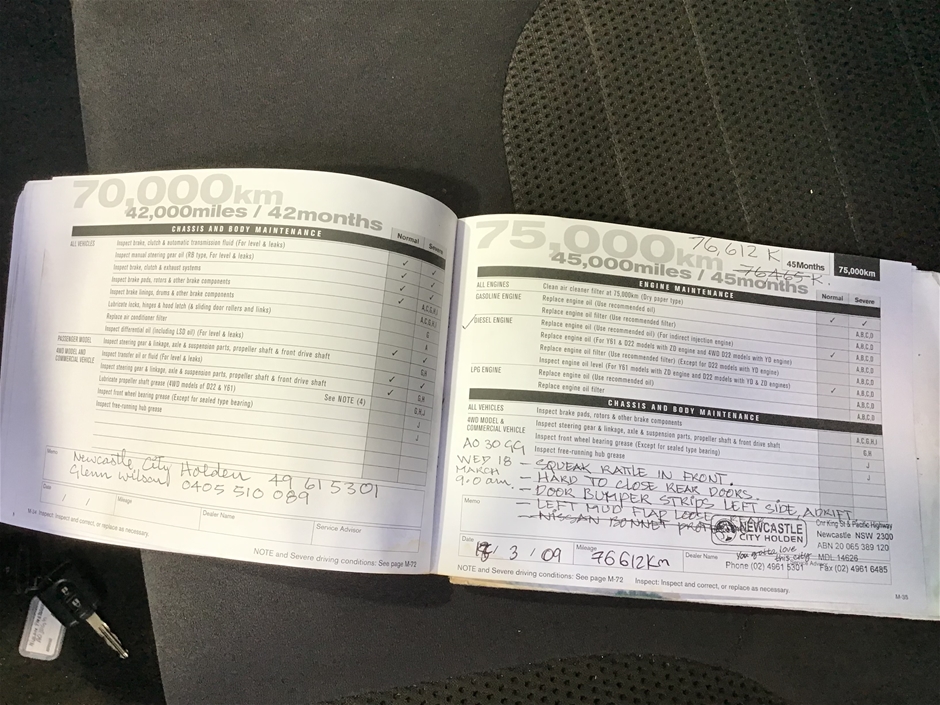 70,000km
42,000miles / 42months
CHASSIS AND BODY MAINTENANCE
Normal Severe
ALL VEHICLES
Inspect brake, clutch & automatic transmission fluid (For level & leaks)
Inspect manual steering gear oil (RB type, For level & leaks)
Inspect brake, clutch & exhaust systems
Inspect brake pads, rotors & other brake components
Inspect brake linings, drums & other brake components
Lubricate locks, hinges & hood latch (& sliding door rollers and links)
Replace air conditioner filter
Inspect differential oil (including LSD oil) (For level & leaks)
PASSENGER MODEL Inspect steering gear & linkage, axle & suspension parts, propeller shaft & front drive shaft
4WD MODEL AND Inspect transfer oil or fluid (For level & leaks)
COMMERCIAL VEHICLE Inspect steering gear & linkage, axle & suspension parts, propeller shaft & front drive shaft
Lubricate propeller shaft grease (4WD models of D22 & Y61) See NOTE (4)
Inspect front wheel bearing grease (Except for sealed type bearing)
Inspect free-running hub grease
Memo
Newcastle City Holden 49 61 5301
Glenn Wilson 0405 510 089
Date / / Mileage Dealer Name Service Advisor
M-34 Inspect: Inspect and correct, or replace as necessary.
NOTE and Severe driving conditions: See page M-72
75,000km
76,612 K
45,000miles / 45months
76465 K.
45Months 75,000km
ENGINE MAINTENANCE
Normal Severe
ALL ENGINES Clean air cleaner filter at 75,000km (Dry paper type)
GASOLINE ENGINE Replace engine oil (Use recommended oil)
Replace engine oil filter (Use recommended filter)
DIESEL ENGINE Replace engine oil (Use recommended oil) (For indirect injection engine)
Replace engine oil (For Y61 & D22 models with ZD engine and 4WD D22 models with YD engine)
Replace engine oil filter (Use recommended filter) (Except for D22 models with YD engine)
Inspect engine oil level (For Y61 models with ZD engine and D22 models with YD & ZD engines)
LPG ENGINE Replace engine oil (Use recommended oil)
Replace engine oil filter
CHASSIS AND BODY MAINTENANCE
ALL VEHICLES Inspect brake pads, rotors & other brake components
4WD MODEL & Inspect steering gear & linkage, axle & suspension parts, propeller shaft & front drive shaft
COMMERCIAL VEHICLE Inspect front wheel bearing grease (Except for sealed type bearing)
Inspect free-running hub grease
AO 30 GG
WED 18 - SQUEAK RATTLE IN FRONT.
MARCH - HARD TO CLOSE REAR DOORS.
9.0 am. - DOOR BUMPER STRIPS LEFT SIDE ADRIFT
- LEFT MUD FLAP LOOSE
- NISSAN BONNET
Memo
NEWCASTLE
CITY HOLDEN
You gotta love this city
Cnr King St & Pacific Highway
Newcastle NSW 2300
ABN 20 065 389 120
MDL 14626
Phone (02) 4961 5301 Fax (02) 4961 6485
Date 18/3/09 Mileage 76612Km Dealer Name
NOTE and Severe driving conditions: See page M-72 Inspect: Inspect and correct, or replace as necessary.
M-35